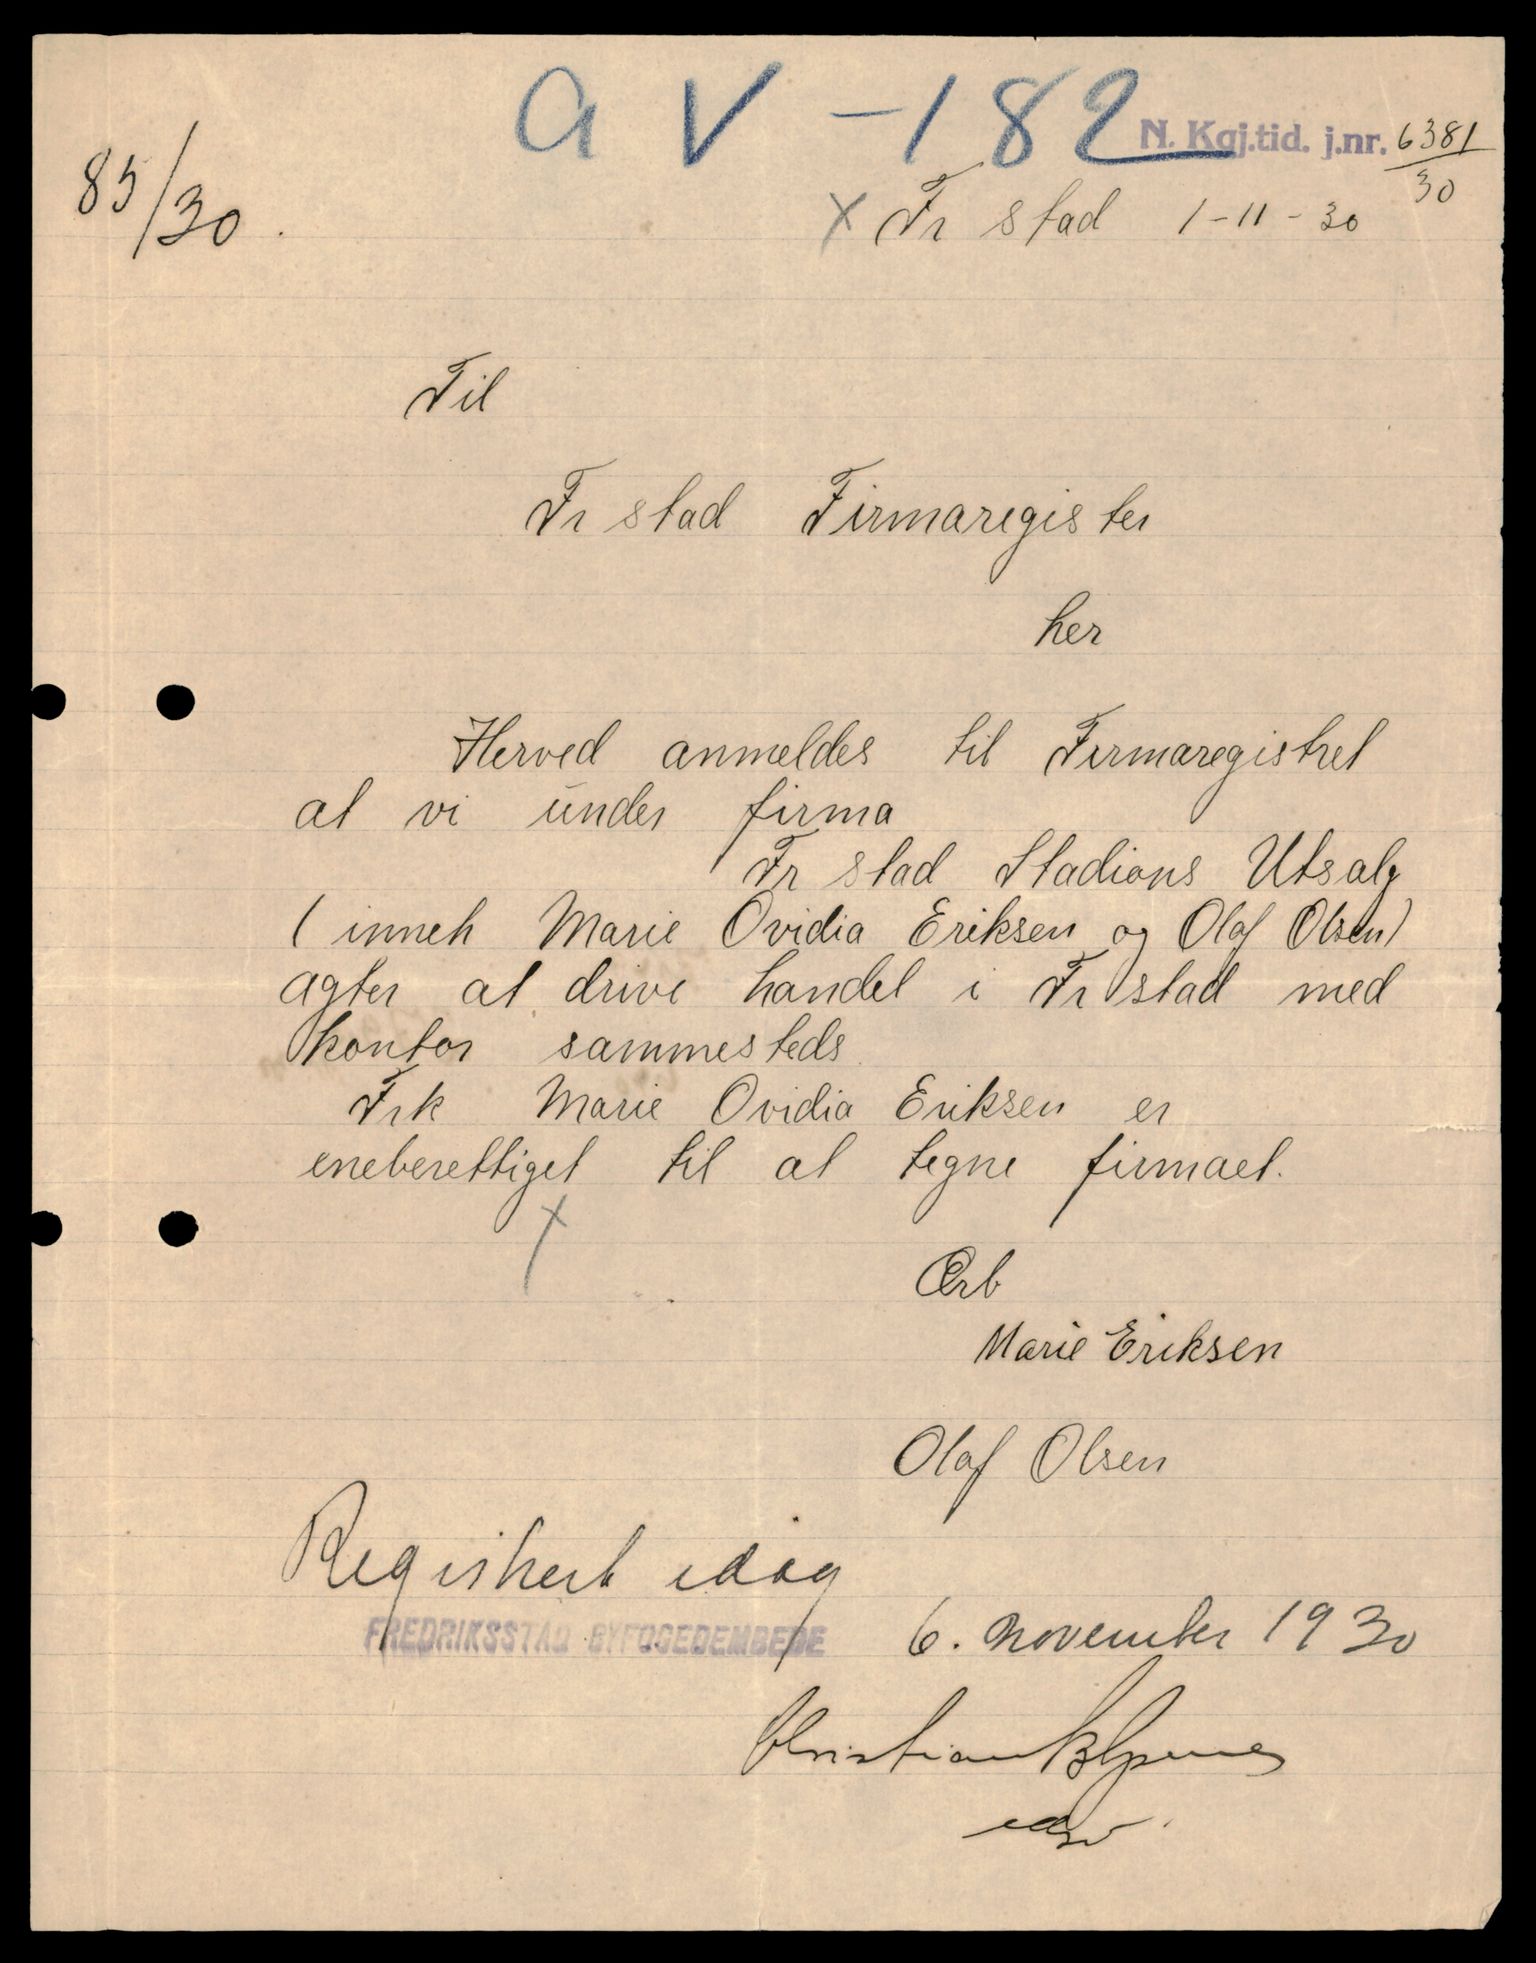 a V - 182
N. Kgj.tid. j.nr. 6381/30
85/30.
x Fr stad 1-11-30
Til
Fr stad Firmaregister
her
Herved anmeldes til Firmaregistret
at vi under firma
Fr stad Stadions Utsalg
(inneh Marie Ovidia Eriksen og Olaf Olsen)
agter at drive handel i Fr stad med
kontor sammesteds.
Frk Marie Ovidia Eriksen er
eneberettiget til at tegne firmaet.
x
Ærb
Marie Eriksen
Olaf Olsen
Registrert idag
FREDRIKSSTAD BYFOGEDEMBEDE 6. november 1930
Christian